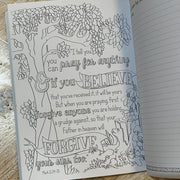 I tell you,
you can
pray for anything
& if you BELIEVE
that you've received it, it will be yours.
But when you are praying, first
forgive anyone you are holding
a grudge against, so that your
Father in heaven will
FORGIVE
your sins, too.
Mark 11:24-25